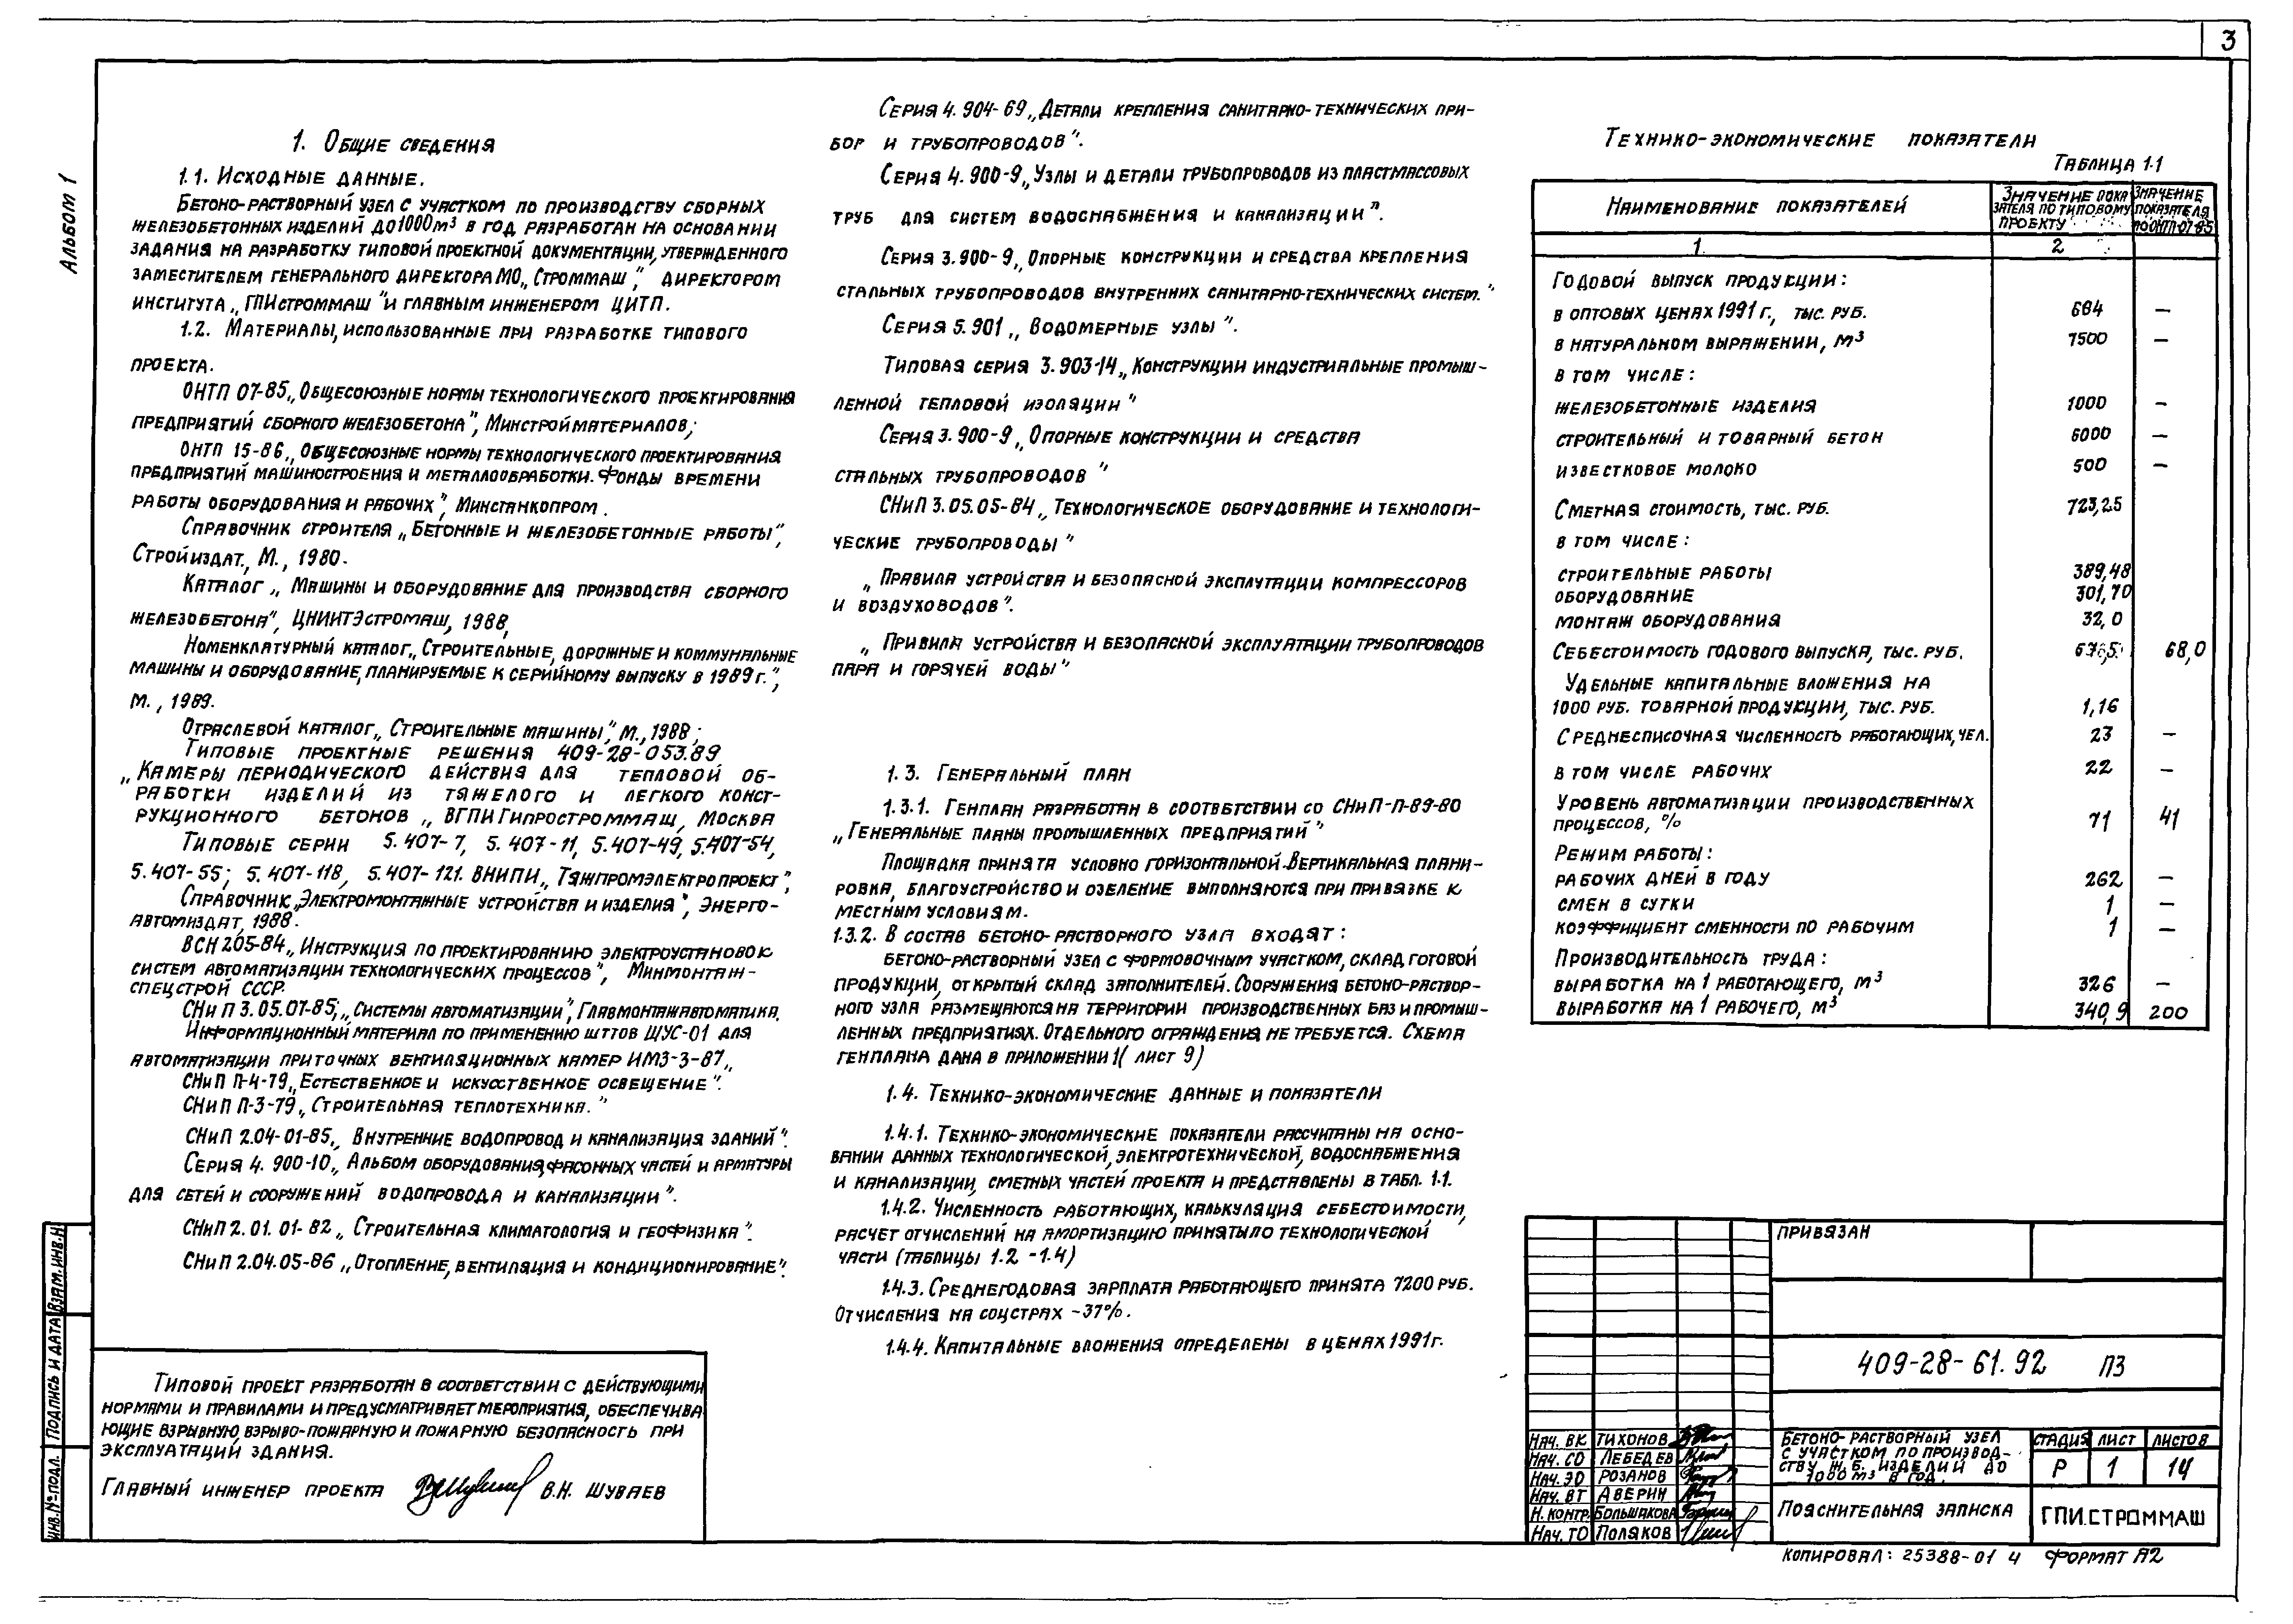 3
Альбом 1
1. Общие сведения
1.1. Исходные данные.
Бетоно-растворный узел с участком по производству сборных
железобетонных изделий до 1000 м³ в год разработан на основании
задания на разработку типовой проектной документации, утвержденного
заместителем генерального директора МО „Строммаш", директором
института „ГПИстроммаш" и главным инженером ЦИТП.
1.2. Материалы, использованные при разработке типового
проекта.
ОНТП 07-85 „Общесоюзные нормы технологического проектирования
предприятий сборного железобетона", Минстройматериалов;
ОНТП 15-86 „Общесоюзные нормы технологического проектирования
предприятий машиностроения и металлообработки. Фонды времени
работы оборудования и рабочих", Минстанкопром.
Справочник строителя „Бетонные и железобетонные работы",
Стройиздат, М., 1980.
Каталог „Машины и оборудование для производства сборного
железобетона", ЦНИИТЭстромаш, 1988,
Номенклатурный каталог „Строительные, дорожные и коммунальные
машины и оборудование, планируемые к серийному выпуску в 1989 г.",
М., 1989.
Отраслевой каталог „Строительные машины", М., 1988;
Типовые проектные решения 409-28-053.89
„Камеры периодического действия для тепловой об-
работки изделий из тяжелого и легкого конст-
рукционного бетонов „ ВГПИ Гипростроммаш, Москва
Типовые серии 5.407-7, 5.407-11, 5.407-49, 5.407-54,
5.407-55; 5.407-118, 5.407-121. ВНИПИ „Тяжпромэлектропроект",
Справочник „Электромонтажные устройства и изделия", Энерго-
автомиздат, 1988.
ВСН 205-84 „Инструкция по проектированию электроустановок
систем автоматизации технологических процессов", Минмонтаж-
спецстрой СССР.
СНиП 3.05.07-85; „Системы автоматизации", Главмонтажавтоматика.
Информационный материал по применению шттов ЩУС-01 для
автоматизации приточных вентиляционных камер ИМЗ-3-87„
СНиП П-4-79 „Естественное и искусственное освещение".
СНиП П-3-79 „Строительная теплотехника."
СНиП 2.04-01-85 „Внутренние водопровод и канализация зданий".
Серия 4.900-10 „Альбом оборудования, фасонных частей и арматуры
для сетей и сооружений водопровода и канализации".
СНиП 2.01.01-82 „Строительная климатология и геофизика".
СНиП 2.04.05-86 „Отопление, вентиляция и кондиционирование".
Типовой проект разработан в соответствии с действующими
нормами и правилами и предусматривает мероприятия, обеспечива-
ющие взрывную, взрыво-пожарную и пожарную безопасность при
эксплуатаций здания.
Главный инженер проекта В.Н. Шуваев
Серия 4.904-69 „Детали крепления санитарно-технических при-
бор и трубопроводов".
Серия 4.900-9 „Узлы и детали трубопроводов из пластмассовых
труб для систем водоснабжения и канализации".
Серия 3.900-9 „Опорные конструкции и средства крепления
стальных трубопроводов внутренних санитарно-технических систем."
Серия 5.901 „Водомерные узлы".
Типовая серия 3.903-14 „Конструкции индустриальные промыш-
ленной тепловой изоляции"
Серия 3.900-9 „Опорные конструкции и средства
стальных трубопроводов"
СНиП 3.05.05-84 „Технологическое оборудование и технологи-
ческие трубопроводы"
„Правила устройства и безопасной эксплутации компрессоров
и воздуховодов".
„Привила устройства и безопасной эксплуатации трубопроводов
пара и горячей воды"
1.3. Генеральный план
1.3.1. Генплан разработан в соответствии со СНиП-П-89-80
„Генеральные планы промышленных предприятий"
Площадка принята условно горизонтальной. Вертикальная плани-
ровка, благоустройство и озеление выполняются при привязке к
местным условиям.
1.3.2. В состав бетоно-растворного узла входят:
бетоно-растворный узел с формовочным участком, склад готовой
продукции, открытый склад заполнителей. Сооружения бетоно-раствор-
ного узла размещаются на территории производственных баз и промыш-
ленных предприятиях. Отдельного ограждения не требуется. Схема
генплана дана в приложении 1 (лист 9)
1.4. Технико-экономические данные и показатели
1.4.1. Технико-экономические показатели рассчитаны на осно-
вании данных технологической, электротехнической, водоснабжения
и канализации, сметных частей проекта и представлены в табл. 1.1.
1.4.2. Численность работающих, калькуляция себестоимости,
расчет отчислений на амортизацию принято по технологической
части (таблицы 1.2 - 1.4)
1.4.3. Среднегодовая зарплата работающего принята 7200 руб.
Отчисления на соцстрах - 37%.
1.4.4. Капитальные вложения определены в ценах 1991 г.
Технико-экономические показатели
Таблица 1.1
Наименование показателей Значение пока зателя по типовому проекту Значение показателя по ОНТП-07-85
1. 2
Годовой выпуск продукции:
в оптовых ценах 1991 г., тыс. руб. 684 —
в натуральном выражении, м³ 7500 —
в том числе:
железобетонные изделия 1000 —
строительный и товарный бетон 6000 —
известковое молоко 500 —
Сметная стоимость, тыс. руб. 723,25
в том числе:
строительные работы 389,48
оборудование 301,70
монтаж оборудования 32,0
Себестоимость годового выпуска, тыс. руб. 68,0
Удельные капитальные вложения на
1000 руб. товарной продукции, тыс. руб. 1,16
Среднесписочная численность работающих, чел. 23 —
в том числе рабочих 22 —
Уровень автоматизации производственных
процессов, % 71 41
Режим работы:
рабочих дней в году 262 —
смен в сутки 1 —
коэффициент сменности по рабочим 1 —
Производительность труда:
выработка на 1 работающего, м³ 326 —
выработка на 1 рабочего, м³ 340,9 200
Привязан
409-28-61.92 ПЗ
Нач. ВК Тихонов
Нач. СО Лебедев
Нач. ЭО Розанов
Нач. ВТ Аверин
Н. контр. Большакова
Нач. ТО Поляков
Бетоно-растворный узел
с участком по производ-
ству ж.б. изделий до
1000 м³ в год.
Стадия Лист Листов
Р 1 14
Пояснительная записка
ГПИ.СТРОММАШ
Копировал: 25388-01 4 Формат А2
Взам. инв. №
Подпись и дата
Инв. № подл.